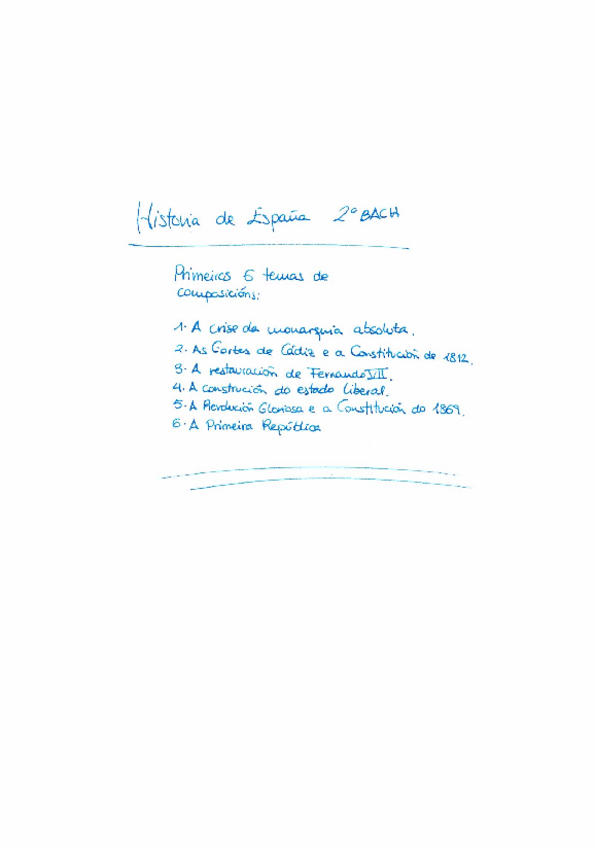 Historia de España 2º BACH
Primeiros 6 temas de
composicións:
1. A crise da monarquia absoluta.
2. As Cortes de Cádiz e a Constitución de 1812.
3. A restauración de Fernando VII.
4. A construción do estado liberal.
5. A Revolución Gloriosa e a Constitución do 1869.
6. A Primeira República